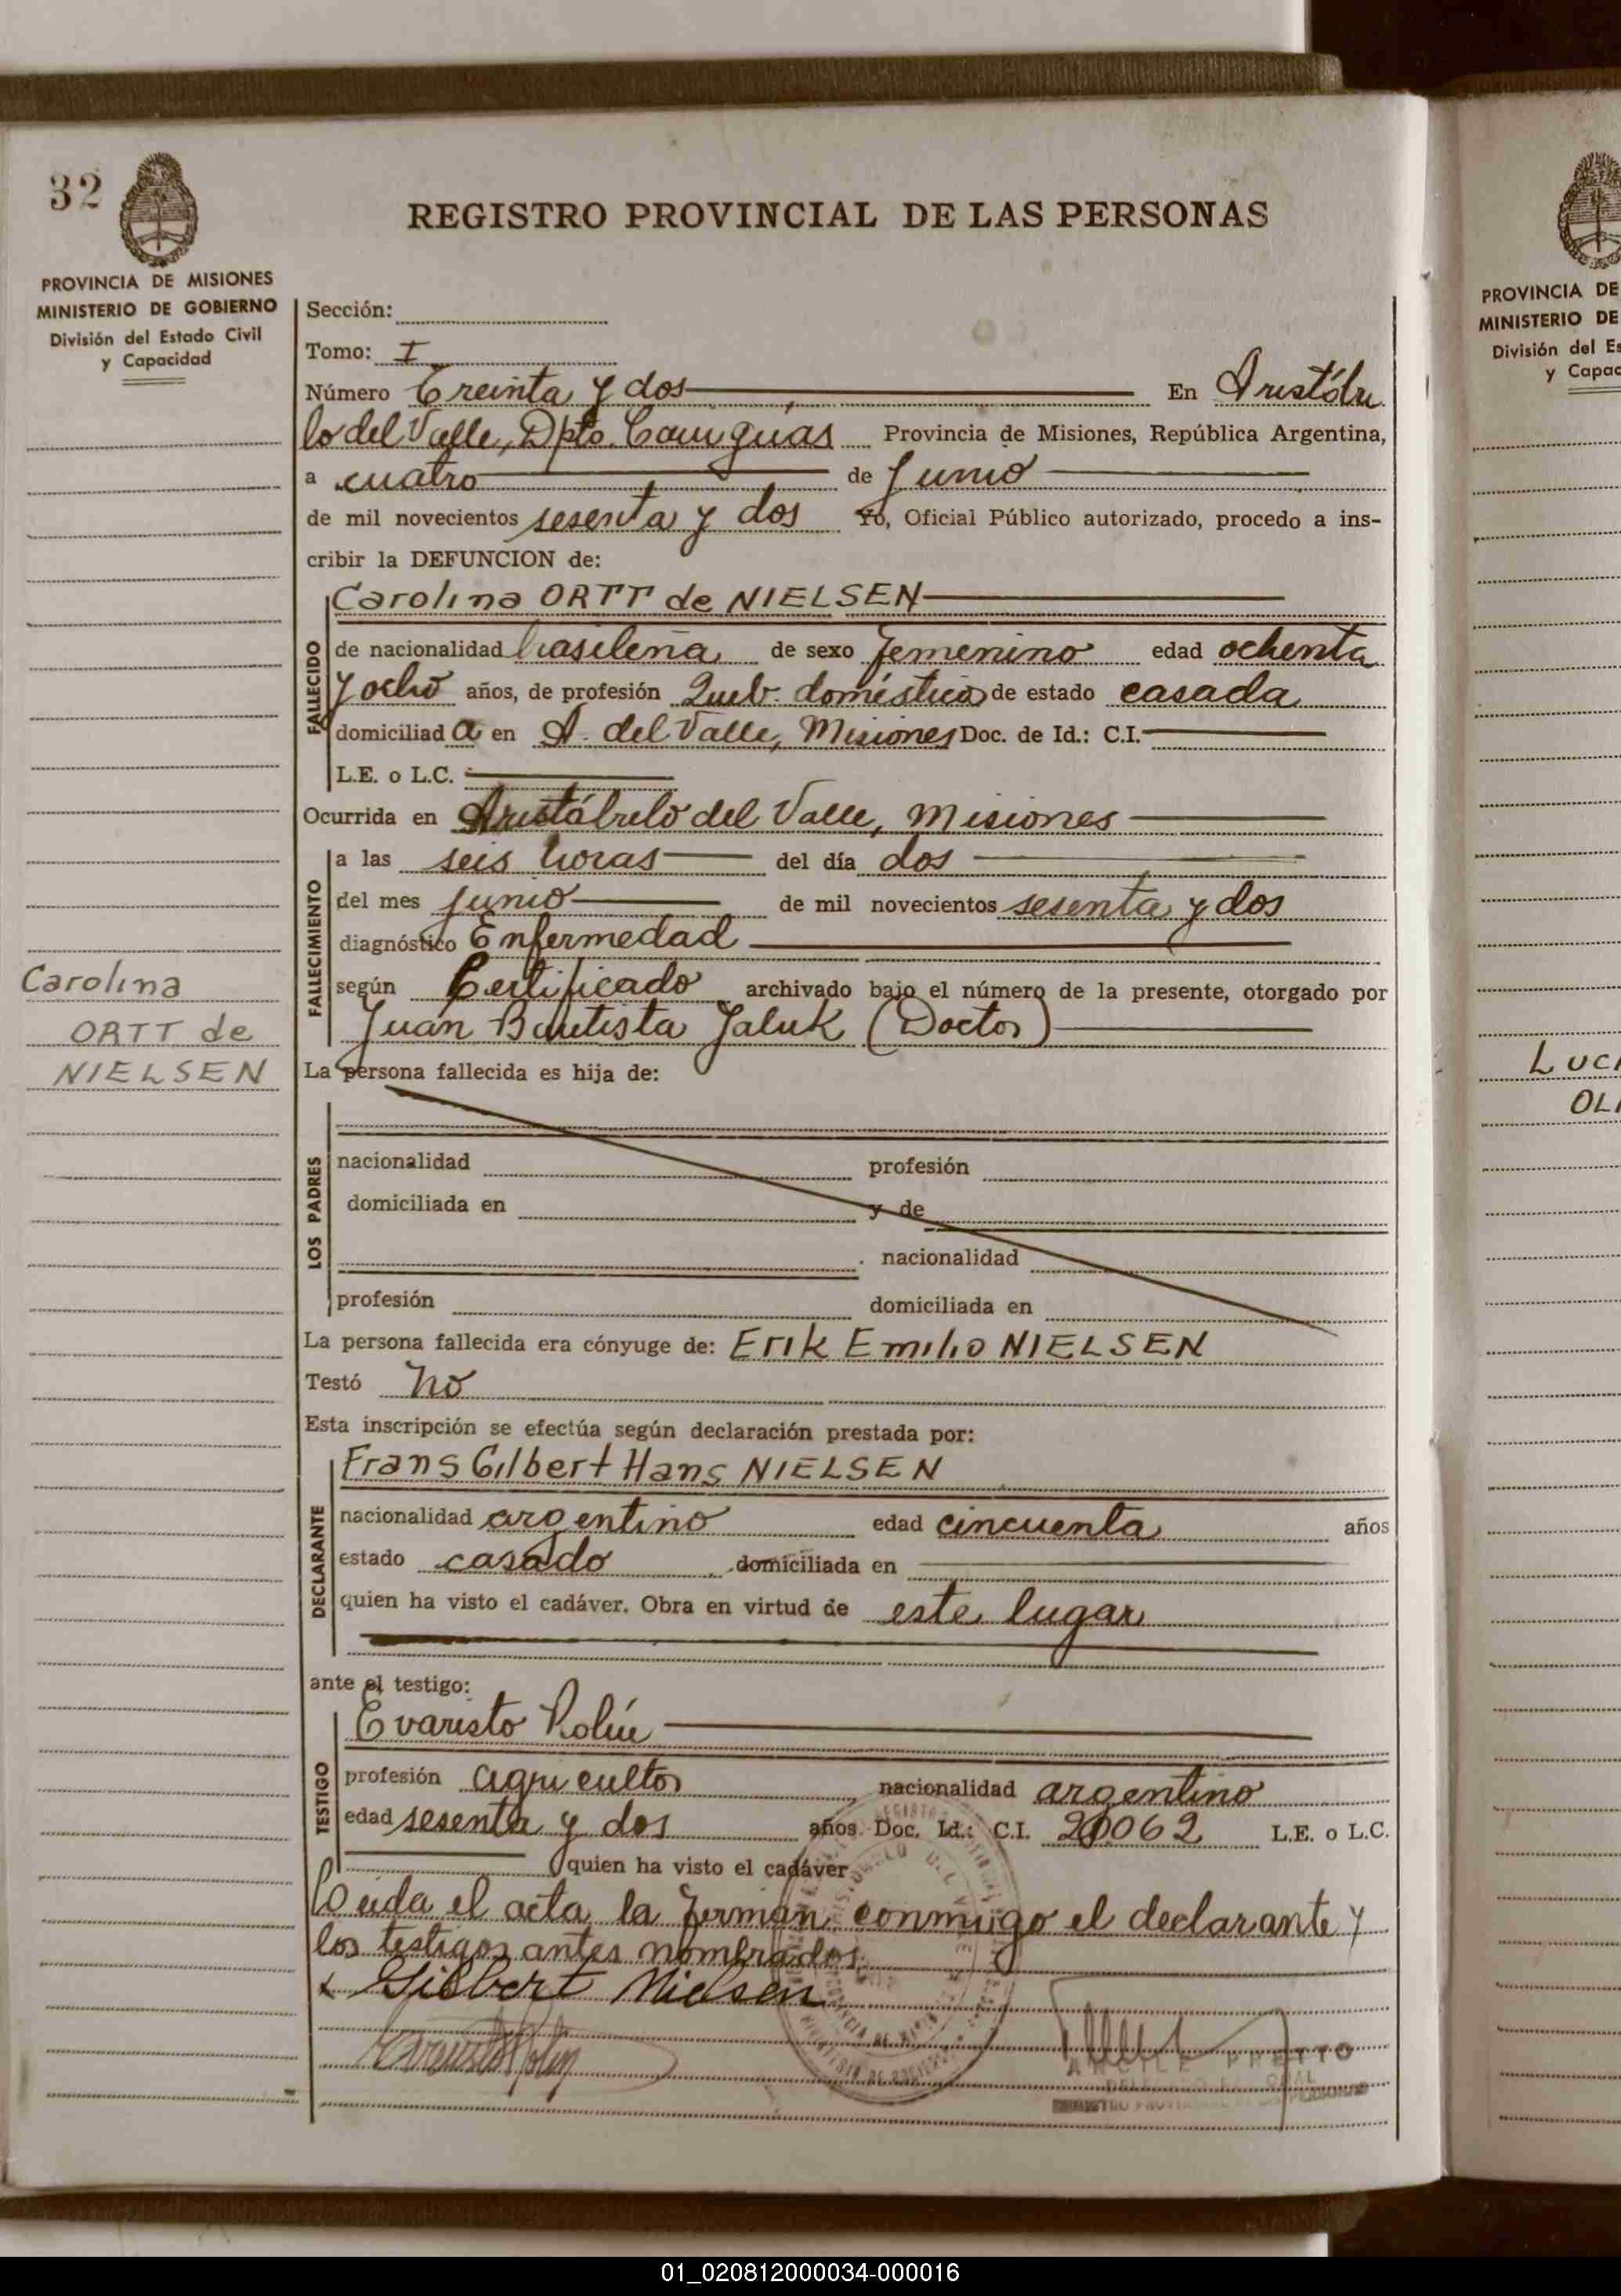 32
PROVINCIA DE MISIONES
MINISTERIO DE GOBIERNO
División del Estado Civil
y Capacidad
REGISTRO PROVINCIAL DE LAS PERSONAS
Sección:
Tomo: I
Número Treinta y dos En Aristóbu
lo del Valle, Dpto. Cainguas Provincia de Misiones, República Argentina,
a cuatro de Junio
de mil novecientos sesenta y dos Yo, Oficial Público autorizado, procedo a ins-
cribir la DEFUNCION de:
Carolina ORTT de NIELSEN
FALLECIDO
de nacionalidad brasileña de sexo femenino edad ochenta
y ocho años, de profesión Queh. doméstico de estado casada
domiciliad a en A. del Valle, Misiones Doc. de Id.: C.I.
L.E. o L.C.
Ocurrida en Aristóbulo del Valle, Misiones
FALLECIMIENTO
a las seis horas del día dos
del mes junio de mil novecientos sesenta y dos
diagnóstico Enfermedad
según Certificado archivado bajo el número de la presente, otorgado por
Juan Bautista Jaluk (Doctor)
Carolina
ORTT de
NIELSEN
La persona fallecida es hija de:
LOS PADRES
nacionalidad profesión
domiciliada en y de
nacionalidad
profesión domiciliada en
La persona fallecida era cónyuge de: Erik Emilio NIELSEN
Testó No
Esta inscripción se efectúa según declaración prestada por:
Frans Gilbert Hans NIELSEN
DECLARANTE
nacionalidad argentino edad cincuenta años
estado casado domiciliada en
quien ha visto el cadáver. Obra en virtud de este lugar
ante el testigo:
Evaristo Rolín
TESTIGO
profesión agricultor nacionalidad argentino
edad sesenta y dos años. Doc. Id.: C.I. 20062 L.E. o L.C.
quien ha visto el cadáver
Leida el acta la firman conmigo el declarante y
los testigos antes nombrados.
x Gilbert Nielsen
PRETTO
PROVINCIA DE
MINISTERIO DE
División del Es
y Capac
LUCI
OLI
01_020812000034-000016